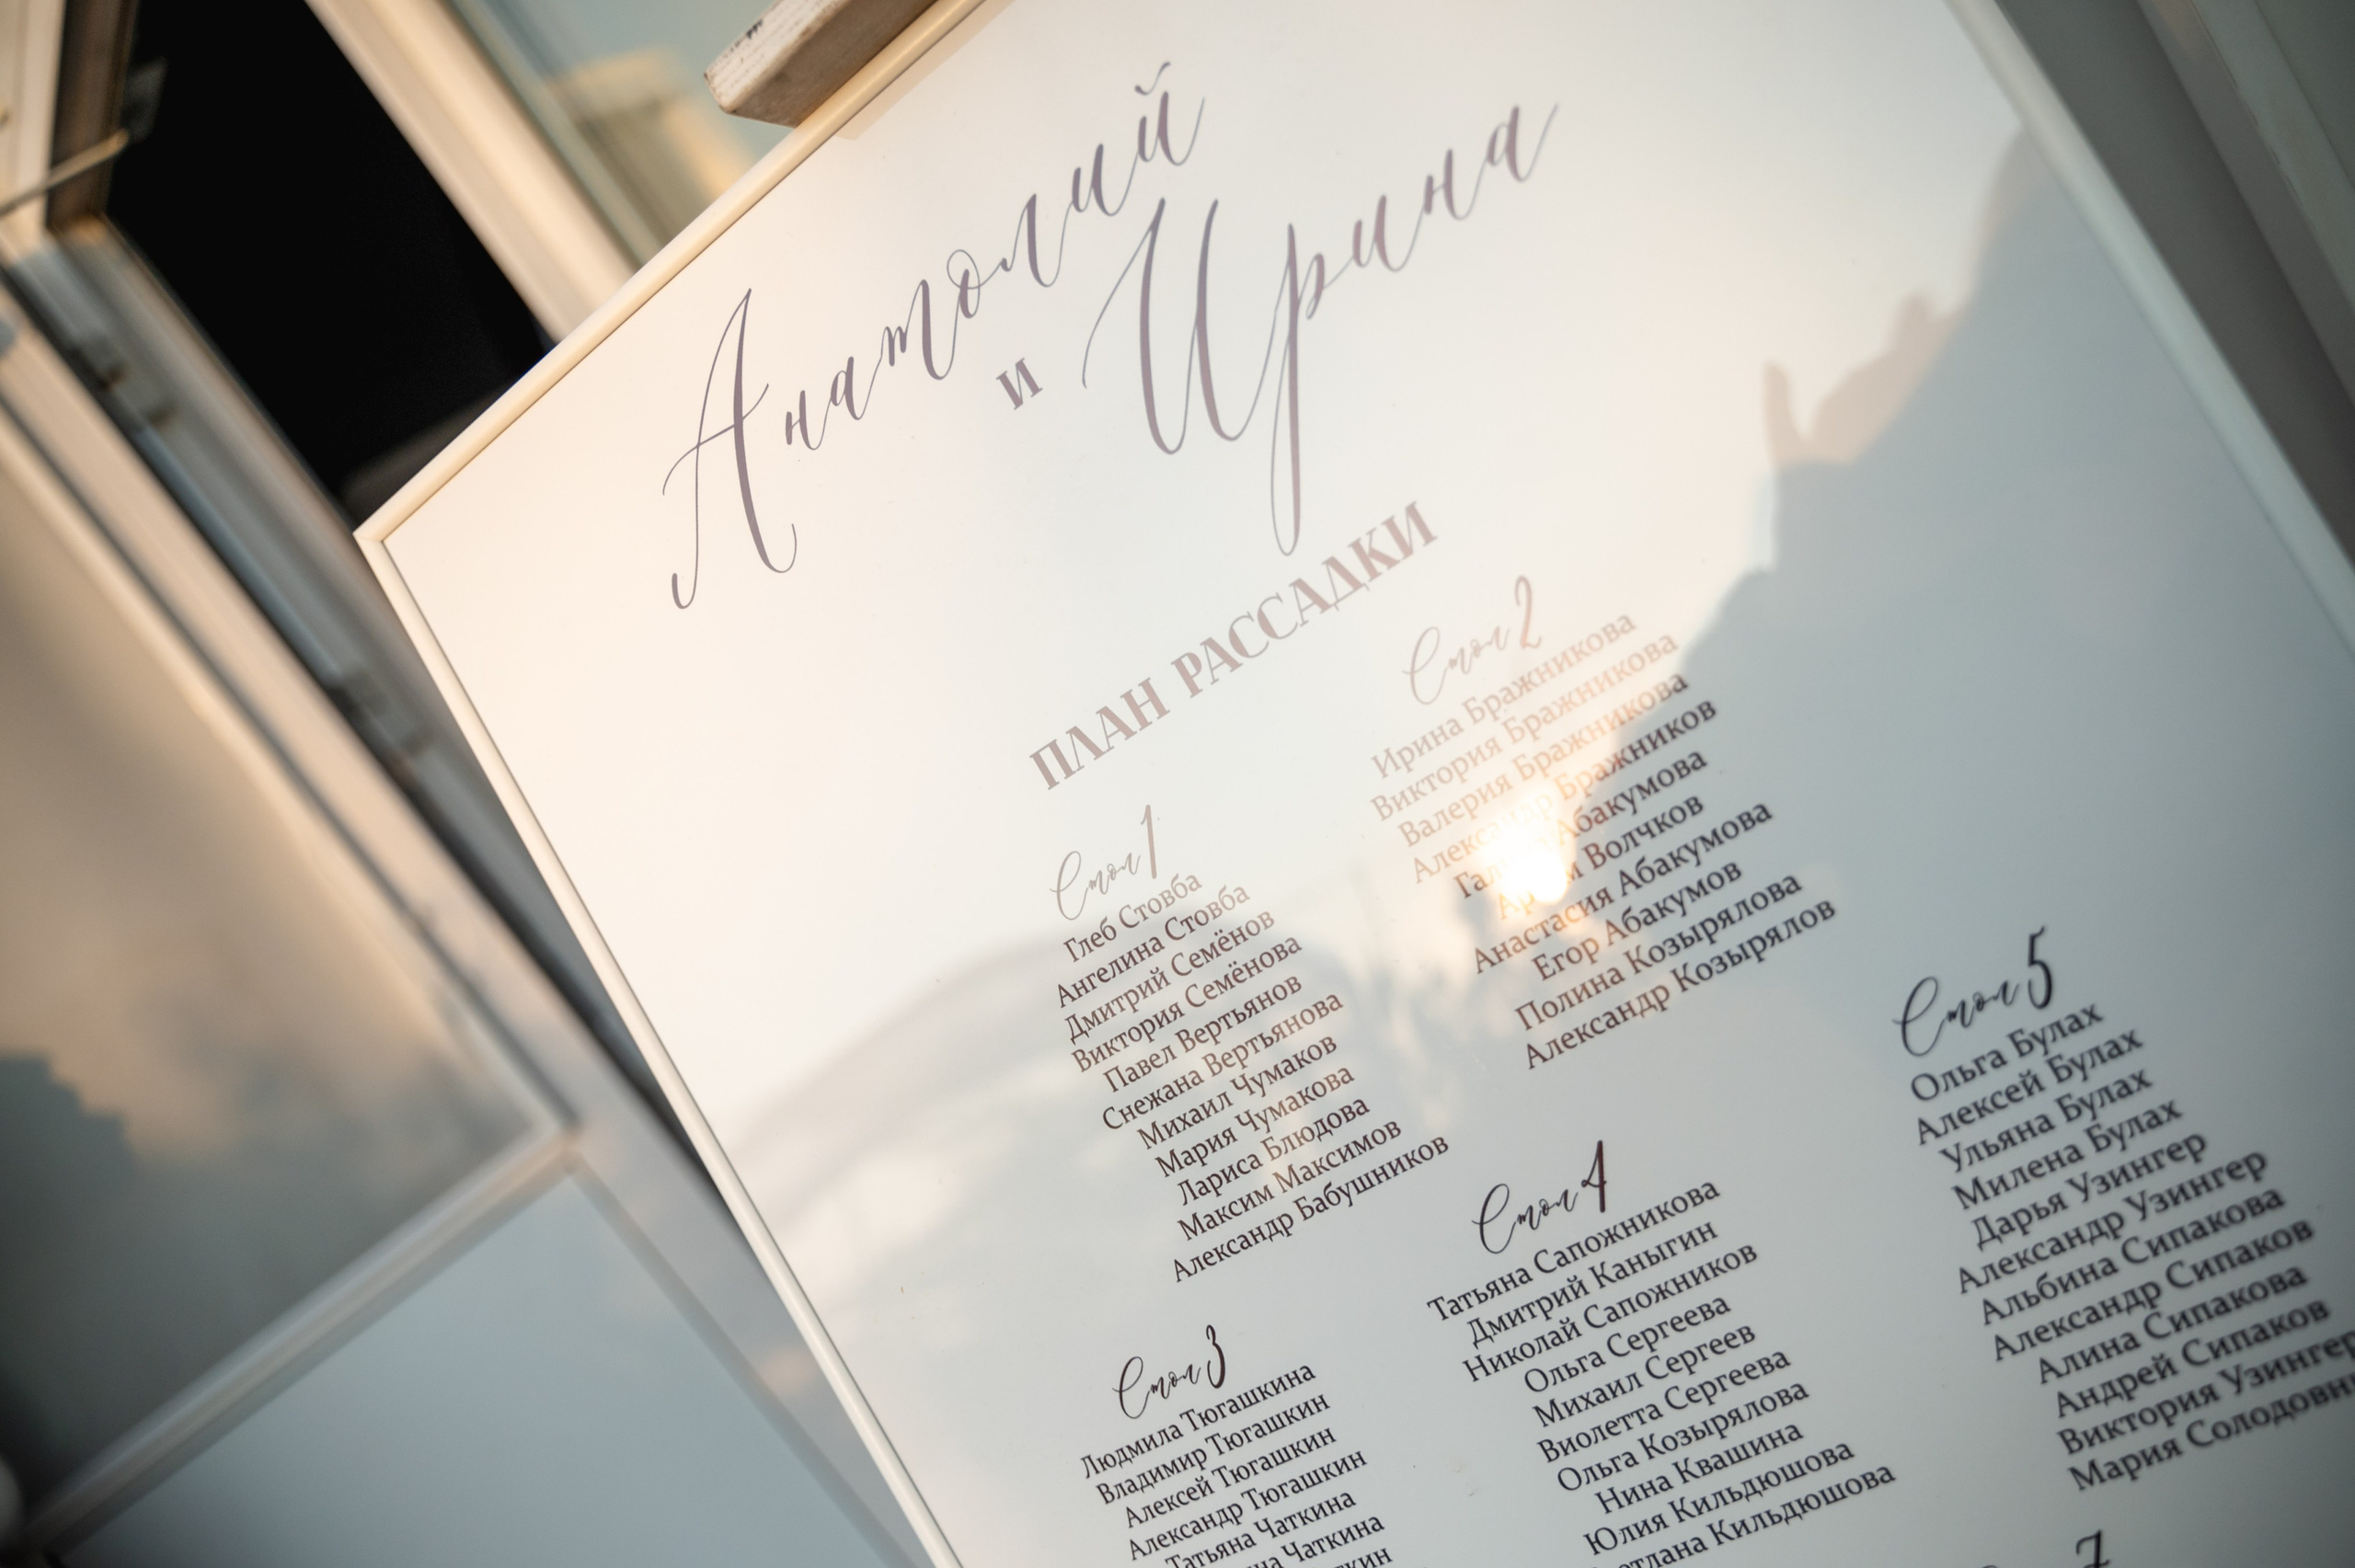 Анатолий
и Ирина
ПЛАН РАССАДКИ
Стол 1
Глеб Стовба
Ангелина Стовба
Дмитрий Семёнов
Виктория Семёнова
Павел Вертьянов
Снежана Вертьянова
Михаил Чумаков
Мария Чумакова
Лариса Блюдова
Максим Максимов
Александр Бабушников
Стол 2
Ирина Бражникова
Виктория Бражникова
Валерия Бражникова
Александр Бражников
Абакумова
Волчков
Анастасия Абакумова
Егор Абакумов
Полина Козырялова
Александр Козырялов
Стол 3
Людмила Тюгашкина
Владимир Тюгашкин
Алексей Тюгашкин
Александр Тюгашкин
Татьяна Чаткина
Чаткина
Стол 4
Татьяна Сапожникова
Дмитрий Каныгин
Николай Сапожников
Ольга Сергеева
Михаил Сергеев
Виолетта Сергеева
Ольга Козырялова
Нина Квашина
Юлия Кильдюшова
Кильдюшова
Стол 5
Ольга Булах
Алексей Булах
Ульяна Булах
Милена Булах
Дарья Узингер
Александр Узингер
Альбина Сипакова
Александр Сипаков
Алина Сипакова
Андрей Сипаков
Виктория Узингер
Мария
7